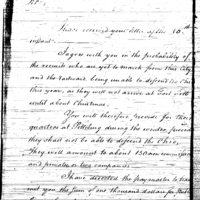 Sir.
I have received your letter of the 10th
instant.
I agree with you in the probability of
the recruits who are yet to march from this City
and the eastward being unable to descend the Ohio
this year, as they will not arrive at Fort Pitt
until about Christmas.
You will therefore provide for their
quarters at Pittsburg during the winter provided
they shall not be able to descend the Ohio.
They will amount to about 130 non commissioned
and privates or two companies.
I have directed the paymaster to trans
mit you the sum of one thousand dollars for